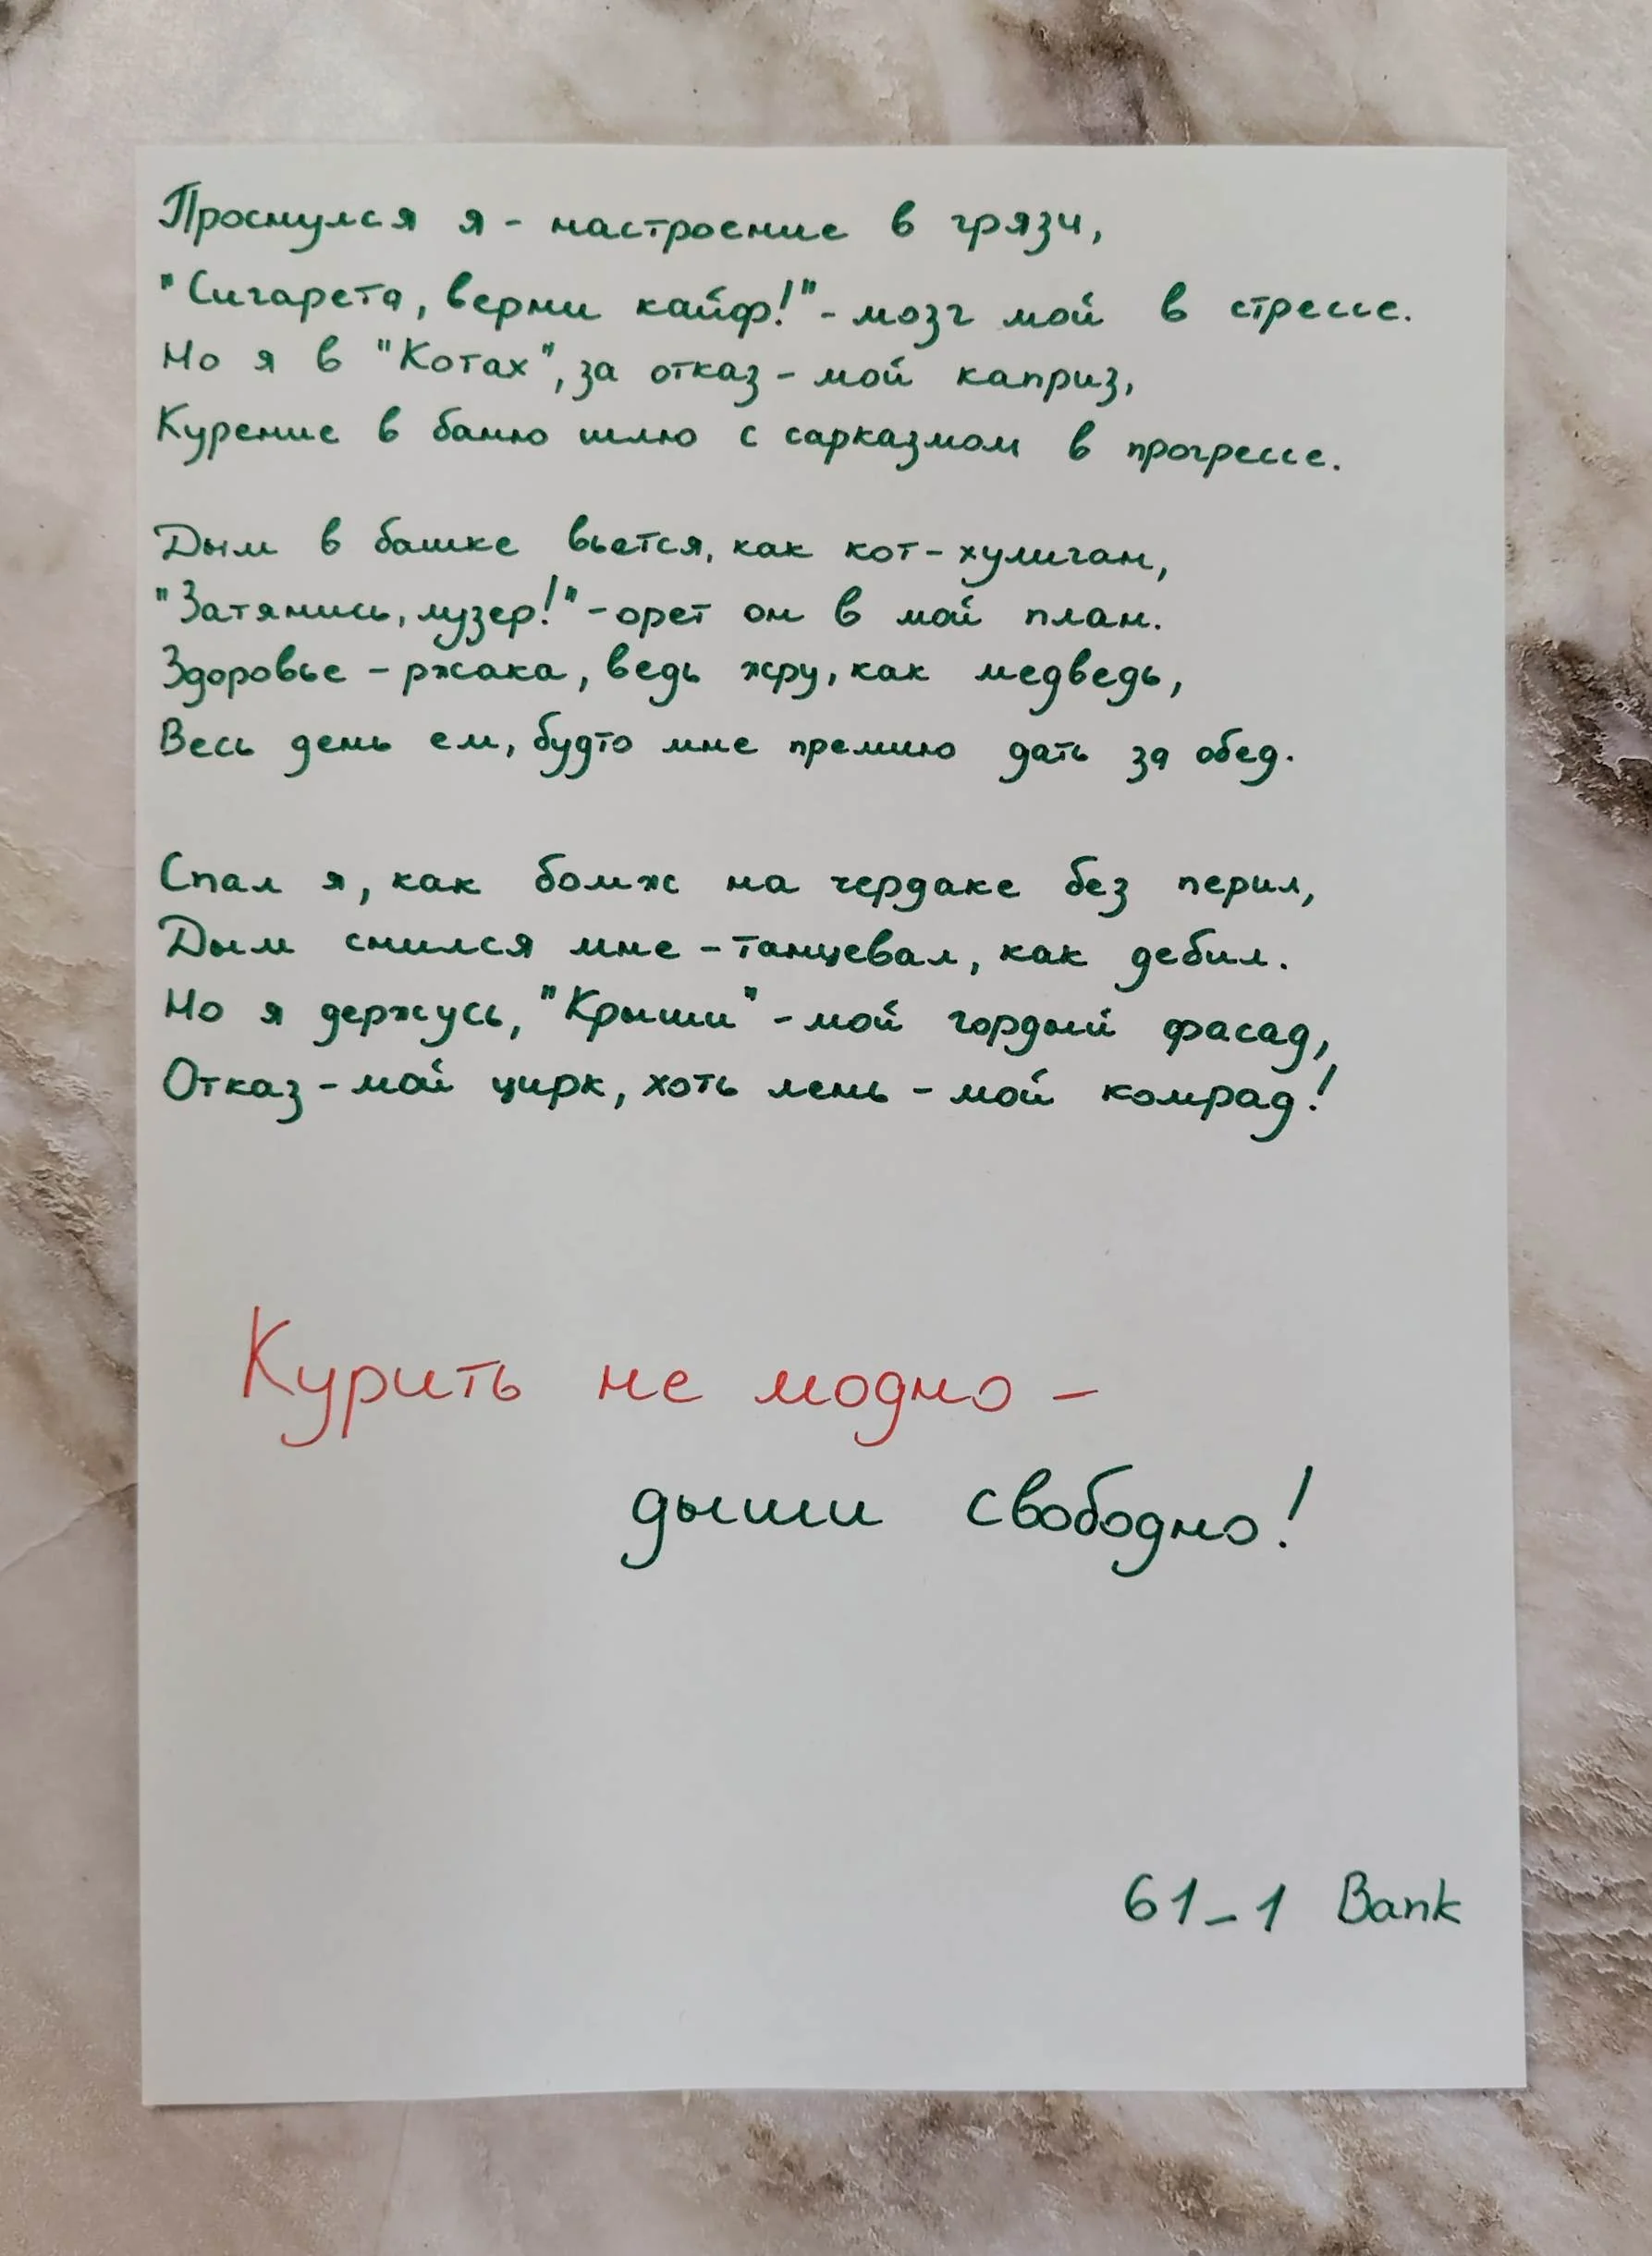 Проснулся я - настроение в грязи,
"Сигарета, верни кайф!" - мозг мой в стрессе.
Но я в "Котах", за отказ - мой каприз,
Курение в баню шлю с сарказмом в прогрессе.
Дым в башке вьется, как кот-хулиган,
"Затянись, лузер!" - орет он в мой план.
Здоровье - ржака, ведь жру, как медведь,
Весь день ем, будто мне премию дать за обед.
Спал я, как бомж на чердаке без перил,
Дым снился мне - танцевал, как дебил.
Но я держусь, "Крыши" - мой гордый фасад,
Отказ - мой цирк, хоть лень - мой комрад!
Курить не модно -
дыши свободно!
61_1 Bank